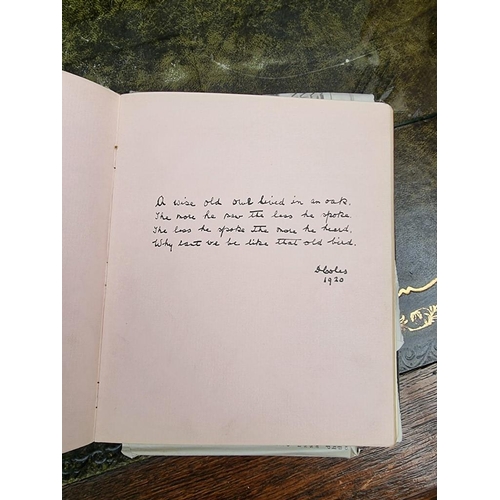 A wise old owl lived in an oak.
The more he saw the less he spoke.
The less he spoke the more he heard,
Why cant we be like that old bird.
D Coles
1920